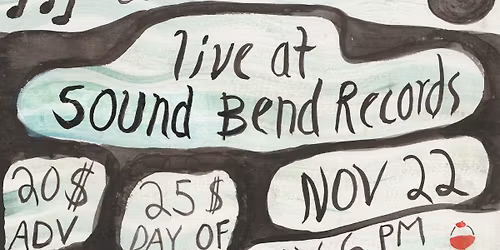 live at
Sound Bend Records
20$
ADV
25$
DAY OF
NOV 22
PM